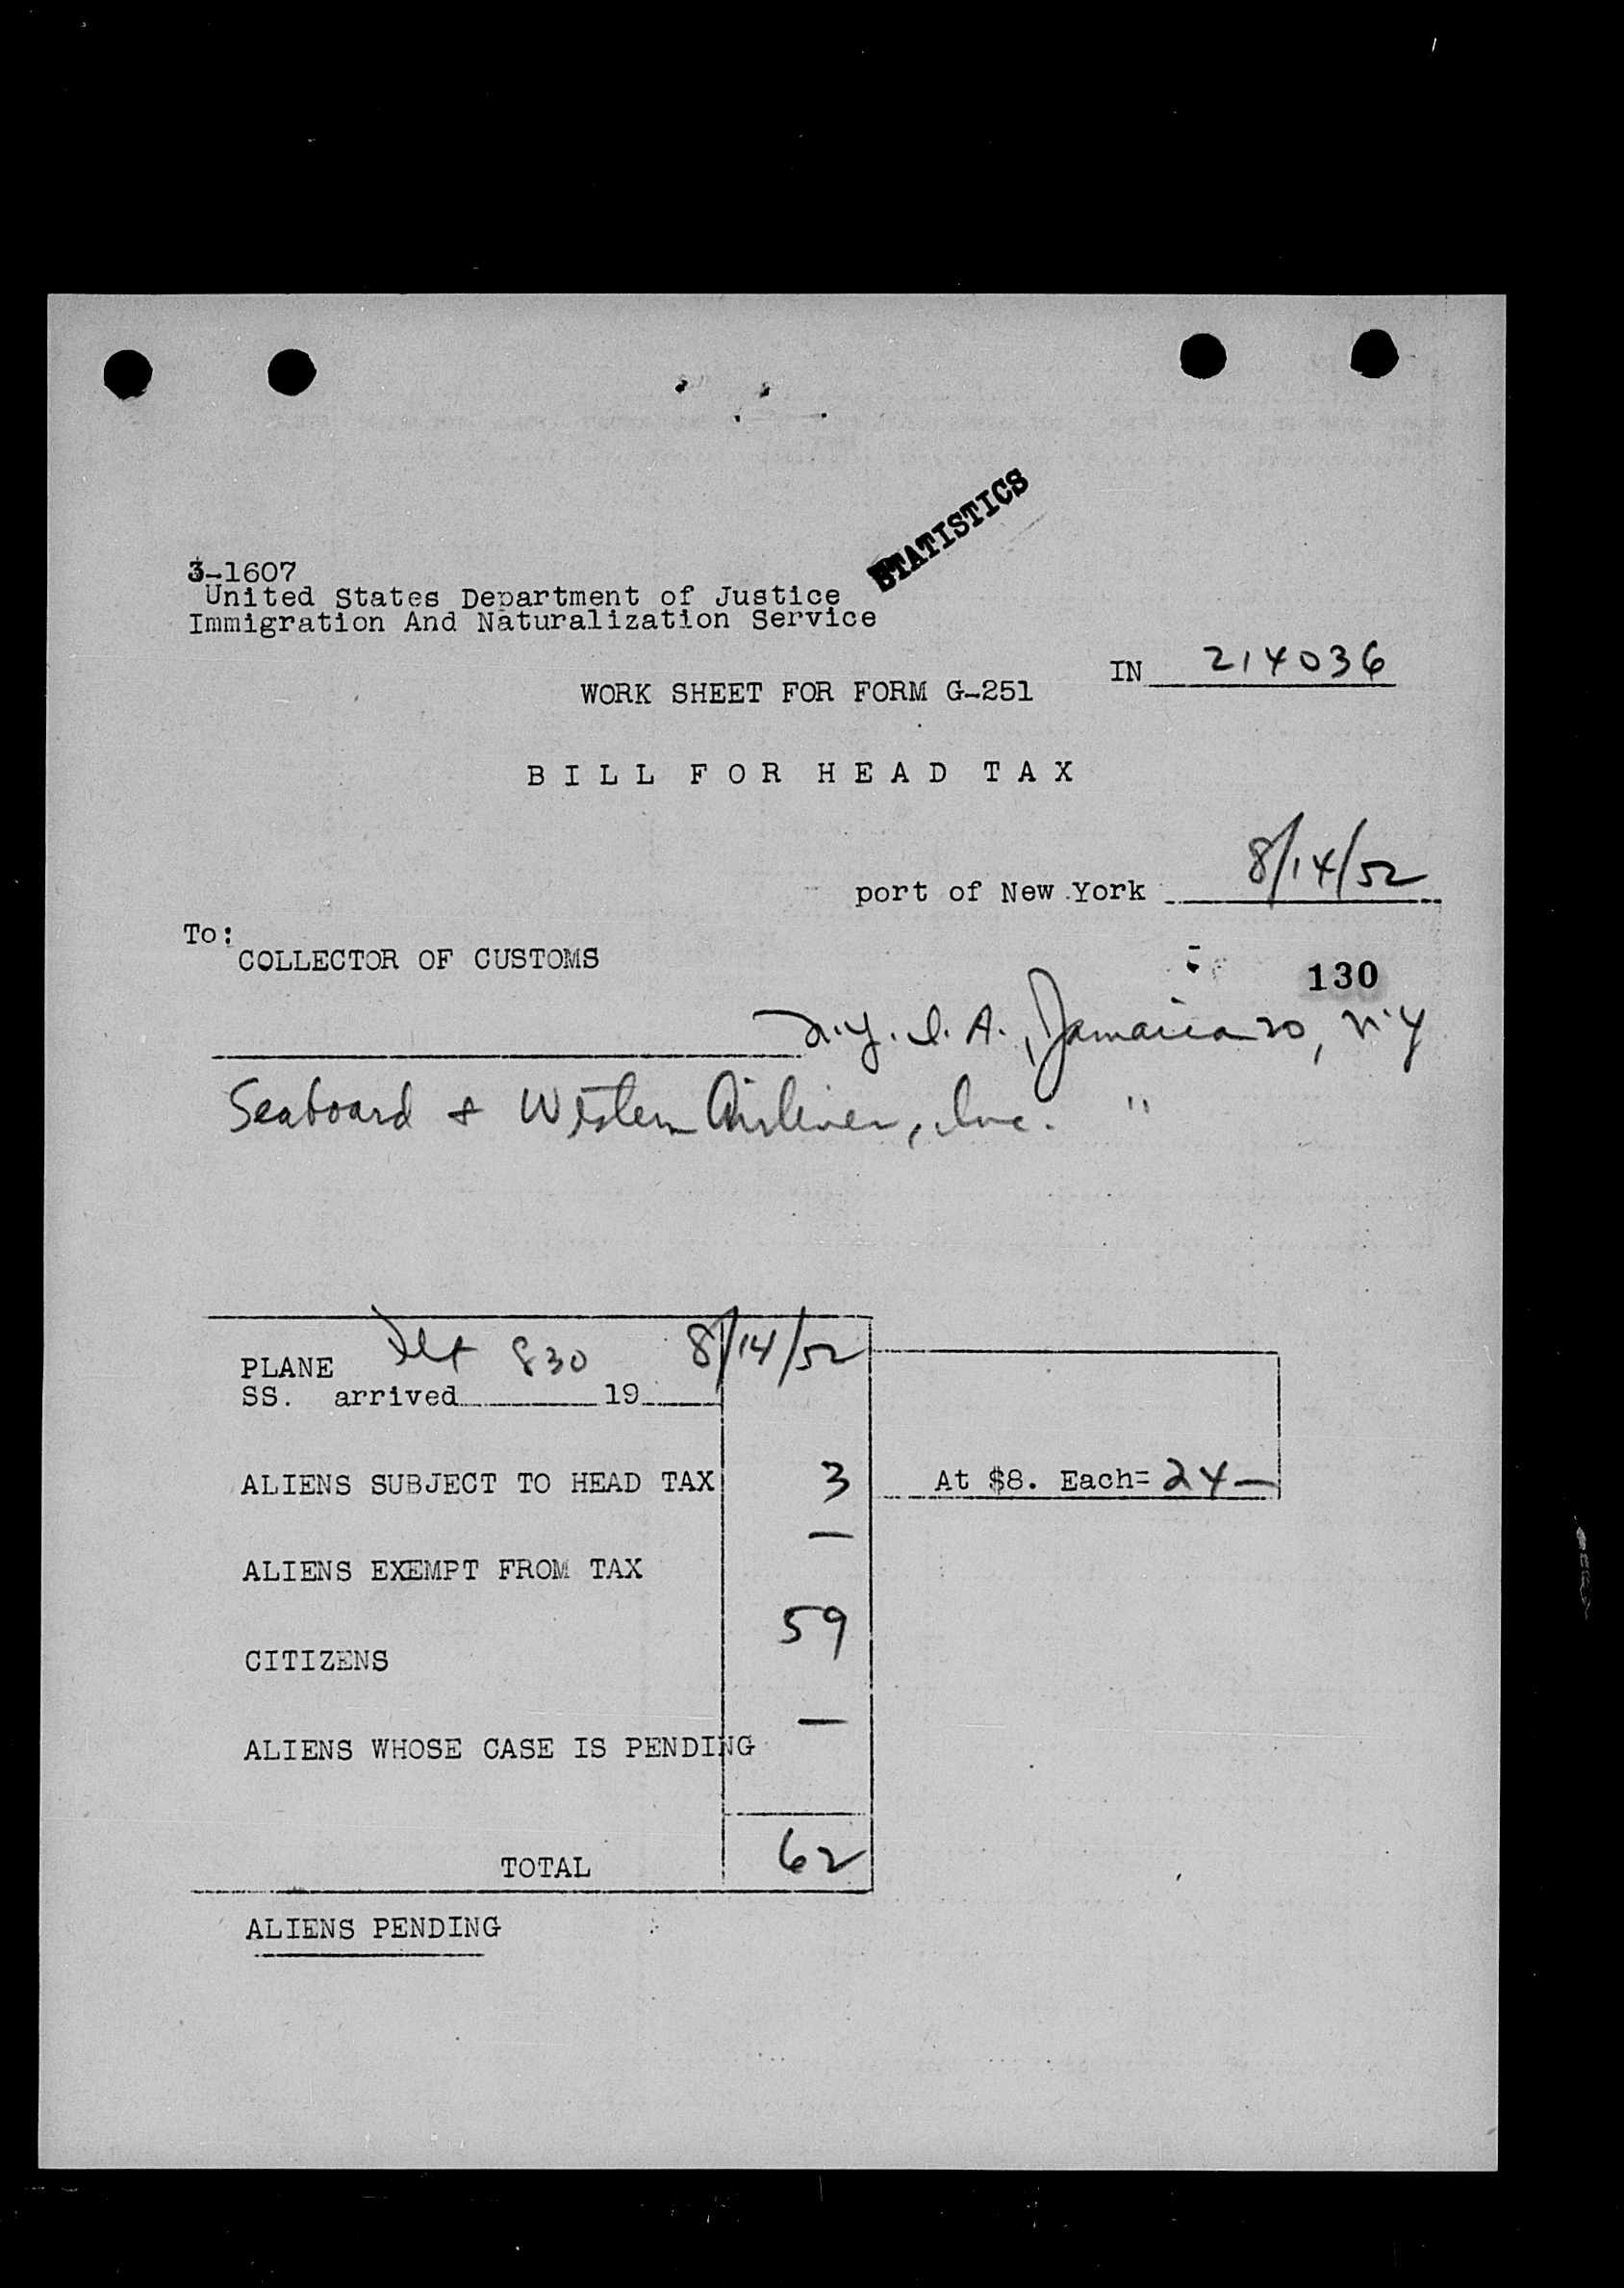 STATISTICS
3-1607
United States Department of Justice
Immigration And Naturalization Service
IN 214036
WORK SHEET FOR FORM G-251
BILL FOR HEAD TAX
port of New York 8/14/52
To:
COLLECTOR OF CUSTOMS
130
N.Y. I. A., Jamaica 20, N.Y
Seaboard & Western Airlines, Inc. "
PLANE Flt 830 8/14/52
SS. arrived 19
ALIENS SUBJECT TO HEAD TAX 3 At $8. Each= 24—
ALIENS EXEMPT FROM TAX —
CITIZENS 59
ALIENS WHOSE CASE IS PENDING —
TOTAL 62
ALIENS PENDING